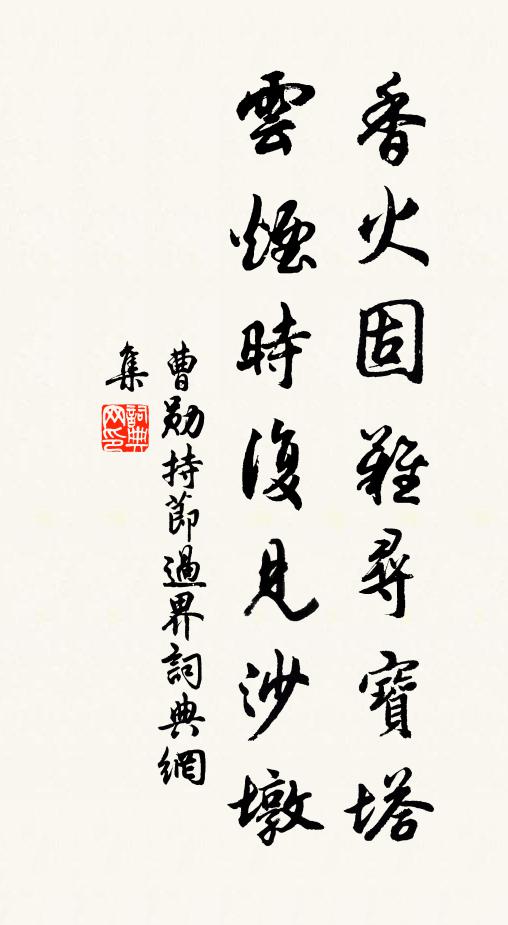 香火固難尋寶塔
雲煙時復見沙墩
曹勛持節過界詞典網
集
詞典网印